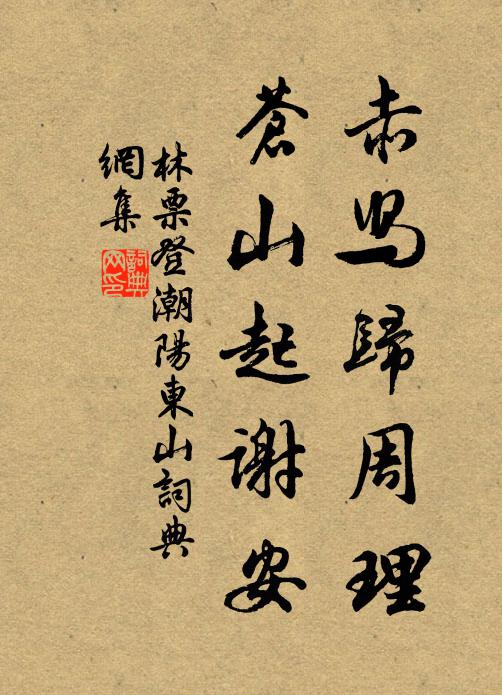 赤舄歸周理
蒼山起謝安
林栗登潮陽東山詞典
網集
詞典網印